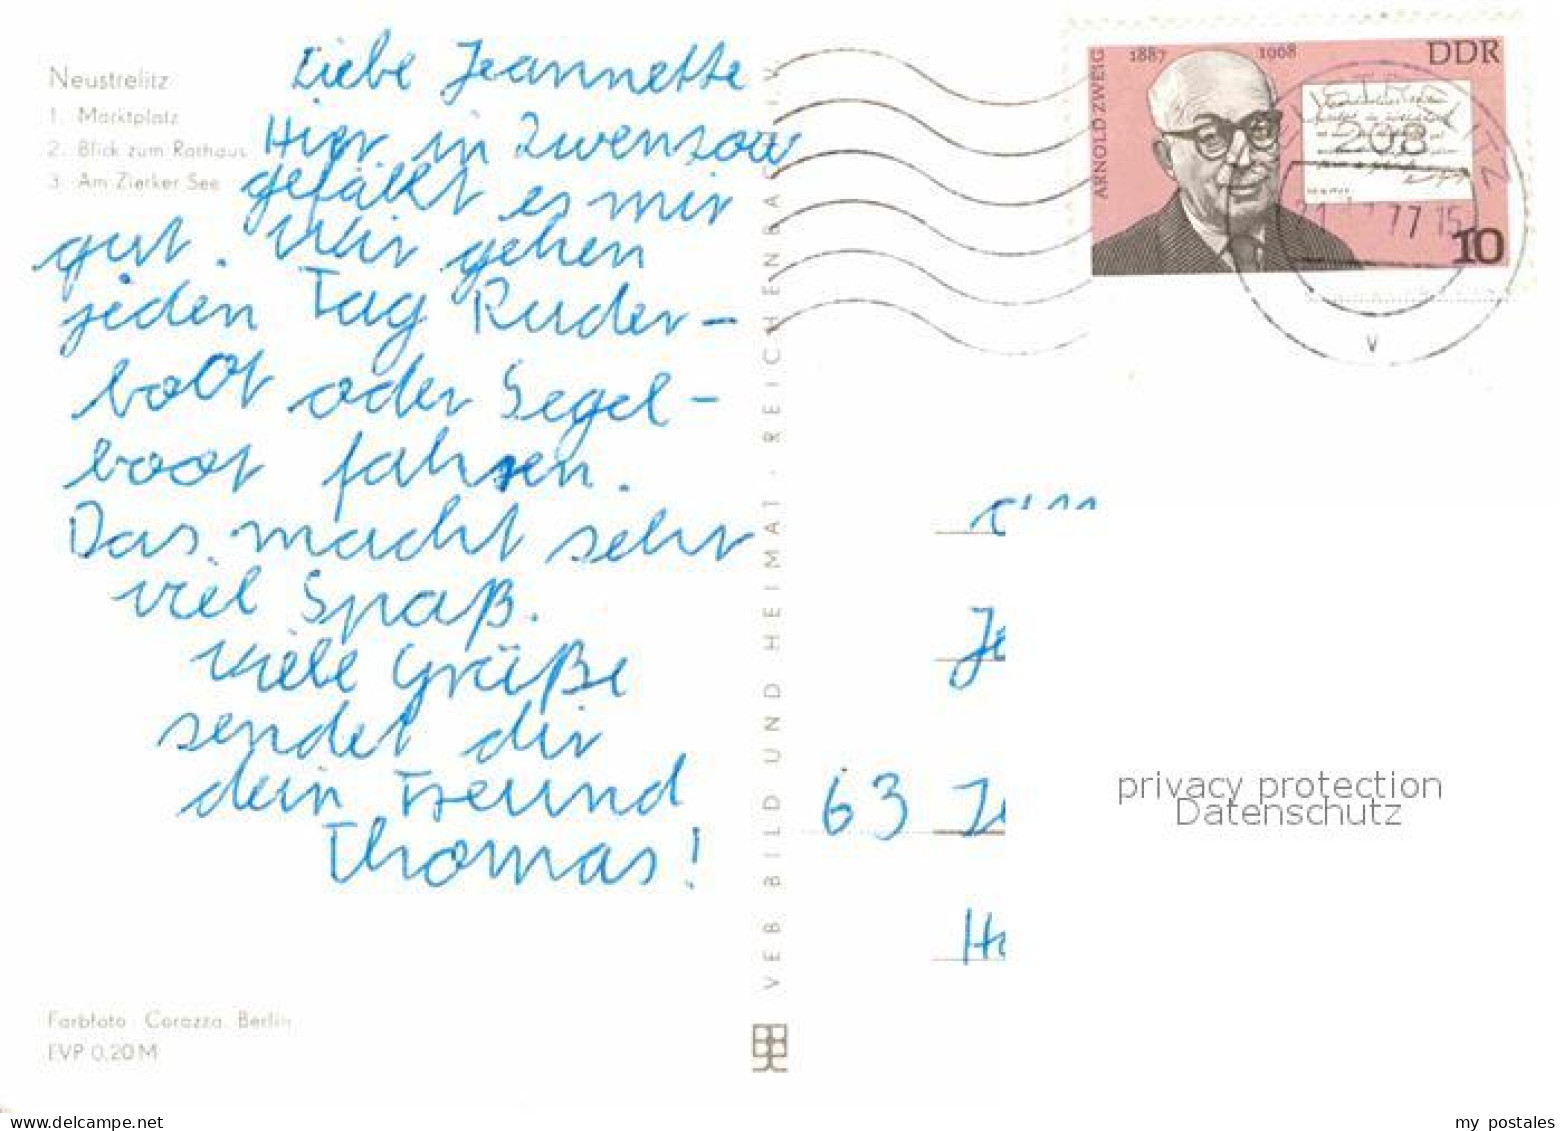 Neustrelitz
1. Marktplatz
2. Blick zum Rathaus
3. Am Zierker See
Liebe Jeannette
Hier in Zwenzow
gefällt es mir
gut. Wir gehen
jeden Tag Ruder-
boot oder Segel-
boot fahren.
Das macht sehr
viel Spaß.
Viele Grüße
sendet dir
dein Freund
Thomas!
Farbfoto: Corazza, Berlin
EVP 0,20 M
VEB BILD UND HEIMAT · REICHENBACH I. V.
ARNOLD ZWEIG
1887 1968
DDR
208
77 15
10
v
63
privacy protection
Datenschutz
www.delcampe.net
my postales